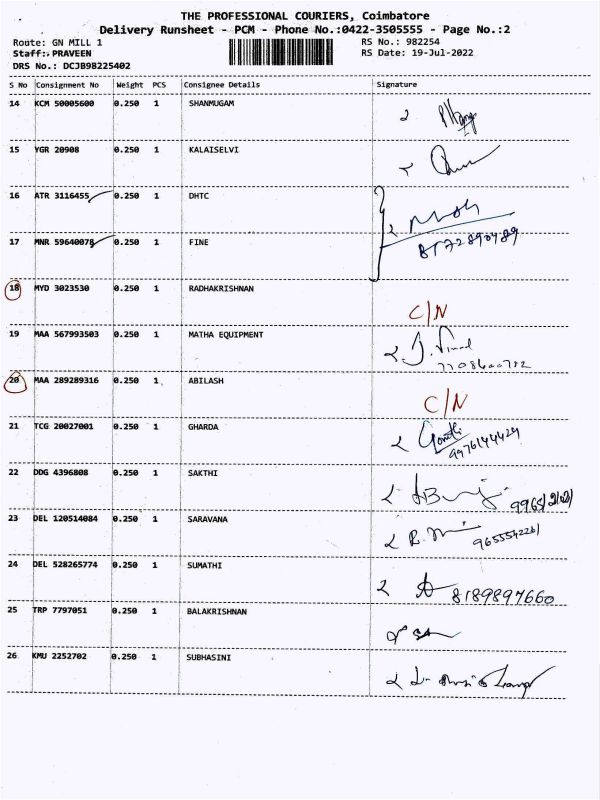 THE PROFESSIONAL COURIERS, Coimbatore
Delivery Runsheet - PCM - Phone No.:0422-3505555 - Page No.:2
Route: GN MILL 1 RS No.: 982254
Staff: PRAVEEN RS Date: 19-Jul-2022
DRS No.: DCJB98225402
S No Consignment No Weight PCS Consignee Details Signature
14 KCM 50005600 0.250 1 SHANMUGAM
15 YGR 20908 0.250 1 KALAISELVI
16 ATR 3116455 0.250 1 DHTC
17 MNR 59640078 0.250 1 FINE
18 MYD 3023530 0.250 1 RADHAKRISHNAN C/N
19 MAA 567993503 0.250 1 MATHA EQUIPMENT
20 MAA 289289316 0.250 1 ABILASH C/N
21 TCG 20027001 0.250 1 GHARDA
9976144429
22 DDG 4396808 0.250 1 SAKTHI
23 DEL 120514084 0.250 1 SARAVANA
24 DEL 528265774 0.250 1 SUMATHI 8189897660
25 TRP 7797051 0.250 1 BALAKRISHNAN
26 KMU 2252702 0.250 1 SUBHASINI